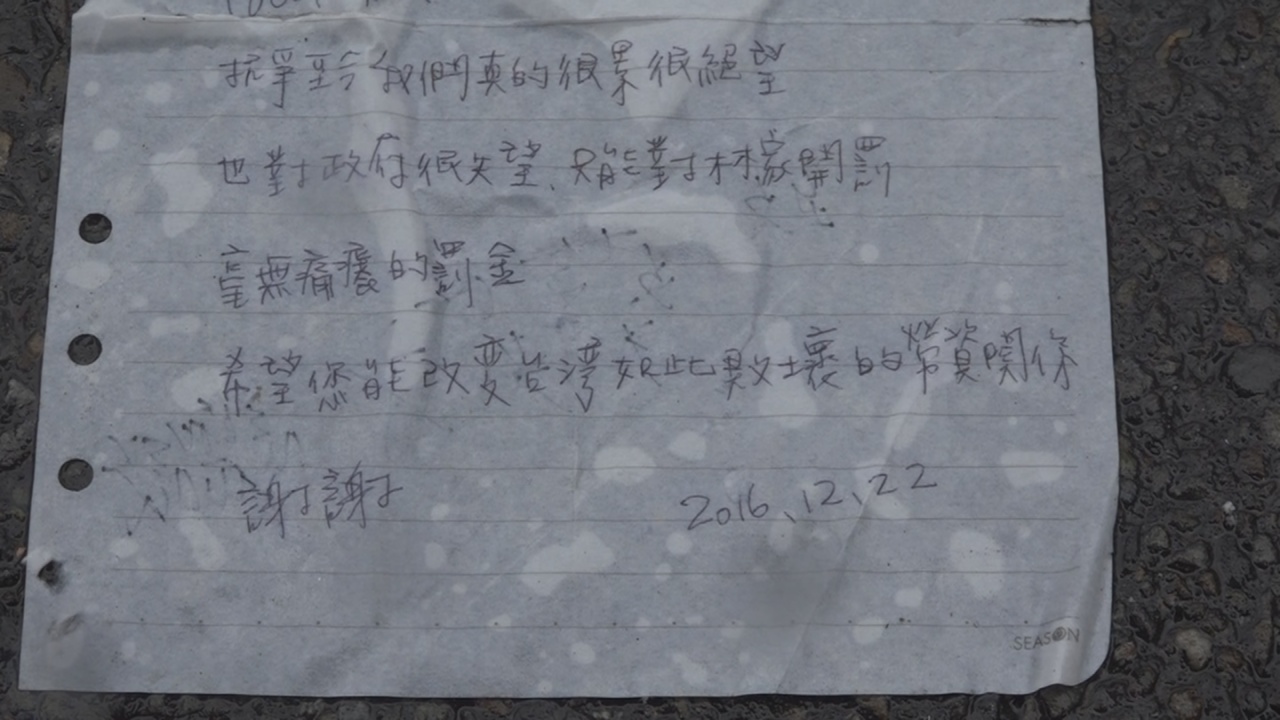 抗爭至今我們真的很累很絕望
也對政府很失望、只能對林家開罰
毫無痛癢的罰金
希望您能改變台灣如此敗壞的勞資關係
謝謝 2016、12、22
SEASON